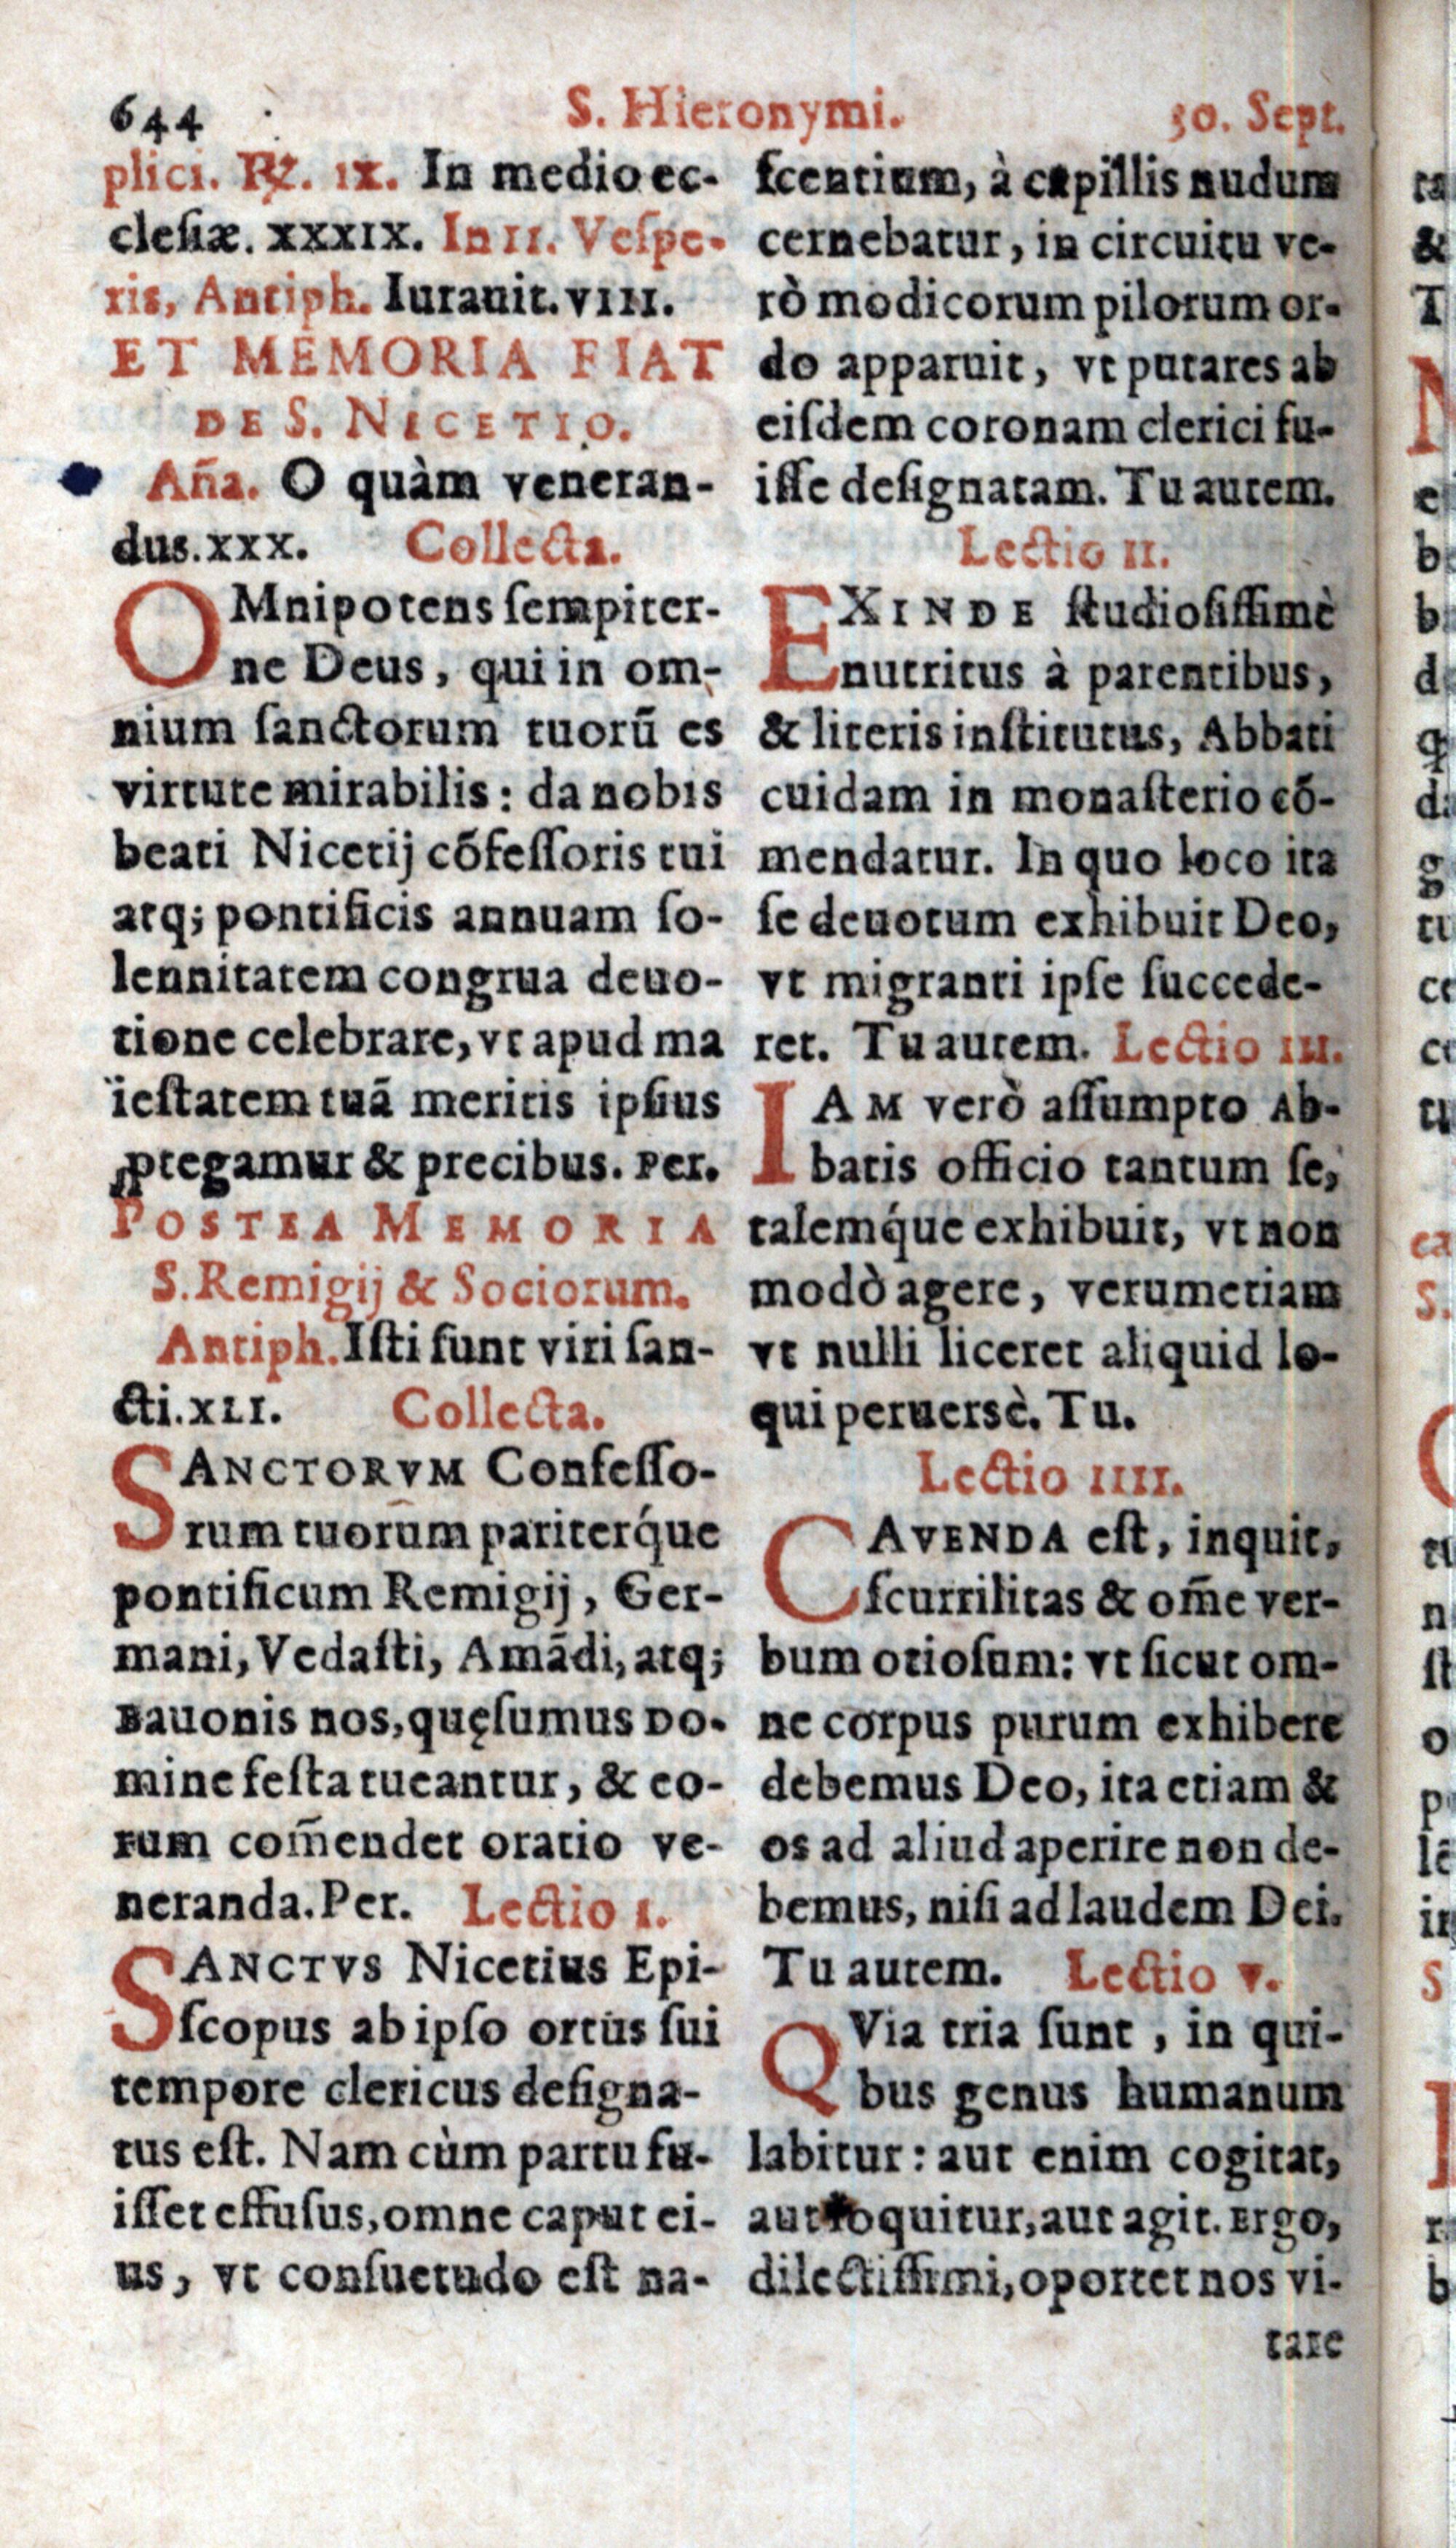 644 S. Hieronymi. 30. Sept.
plici. ℞. IX. In medio ec-
cleſiæ. XXXIX. In II. Veſpe-
ris, Antiph. Iurauit. VIII.
ET MEMORIA FIAT
DE S. NICETIO.
Añа. O quàm veneran-
dus. XXX. Collecta.
OMnipotens ſempiter-
ne Deus, qui in om-
nium ſanctorum tuorũ es
virtute mirabilis: da nobis
beati Nicetij cõfeſſoris tui
atq; pontificis annuam ſo-
lennitatem congrua deuo-
tione celebrare, vt apud ma
ieſtatem tuã meritis ipſius
ꝓtegamur & precibus. Per.
POSTEA MEMORIA
S. Remigij & Sociorum.
Antiph. Iſti ſunt viri ſan-
cti. XLI. Collecta.
SANCTORVM Confeſſo-
rum tuorum pariterq́ue
pontificum Remigij, Ger-
mani, Vedaſti, Amãdi, atq;
Bauonis nos, quęſumus Do-
mine feſta tueantur, & eo-
rum com̃endet oratio ve-
neranda. Per. Lectio I.
SANCTVS Nicetius Epi-
ſcopus ab ipſo ortus ſui
tempore clericus deſigna-
tus eſt. Nam cùm partu fu-
iſſet effuſus, omne caput ei-
us, vt conſuetudo eſt na-
ſcentium, à capillis nudum
cernebatur, in circuitu ve-
rò modicorum pilorum or-
do apparuit, vt putares ab
eiſdem coronam clerici fu-
iſſe deſignatam. Tu autem.
Lectio II.
EXINDE ſtudioſiſſimè
nutritus à parentibus,
& literis inſtitutus, Abbati
cuidam in monaſterio cõ-
mendatur. In quo loco ita
ſe deuotum exhibuit Deo,
vt migranti ipſe ſuccede-
ret. Tu autem. Lectio III.
IAM verò aſſumpto Ab-
batis officio tantum ſe,
talemq́ue exhibuit, vt non
modò agere, verumetiam
vt nulli liceret aliquid lo-
qui peruersè. Tu.
Lectio IIII.
CAVENDA eſt, inquit,
ſcurrilitas & om̃e ver-
bum otioſum: vt ſicut om-
ne corpus purum exhibere
debemus Deo, ita etiam &
os ad aliud aperire non de-
bemus, niſi ad laudem Dei.
Tu autem. Lectio V.
QVia tria ſunt, in qui-
bus genus humanum
labitur: aut enim cogitat,
aut loquitur, aut agit. Ergo,
dilectiſſimi, oportet nos vi-
tare